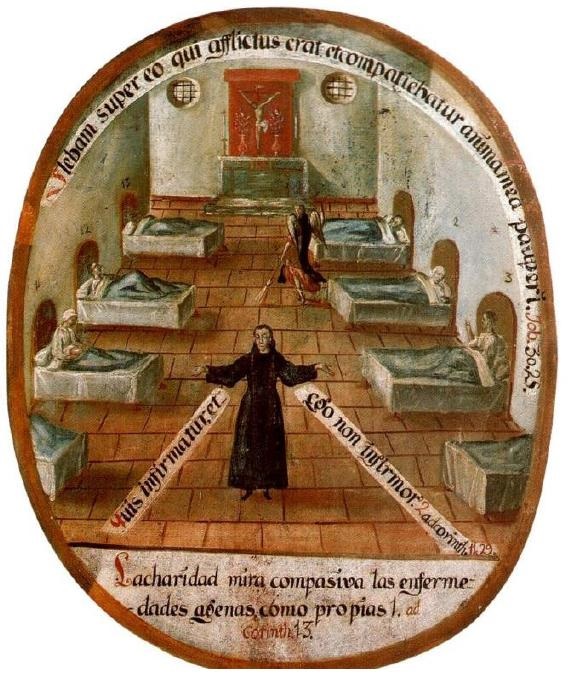 Flebam super eo qui afflictus erat et compatiebatur anima mea pauperi. Job. 30.25.
12
2
3
Quis infirmatur, et
ego non infirmor. 2 ad corinth. 11. 29.
La charidad mira compasiva las enferme-
dades agenas, cómo propias 1. ad
Corinth. 13.